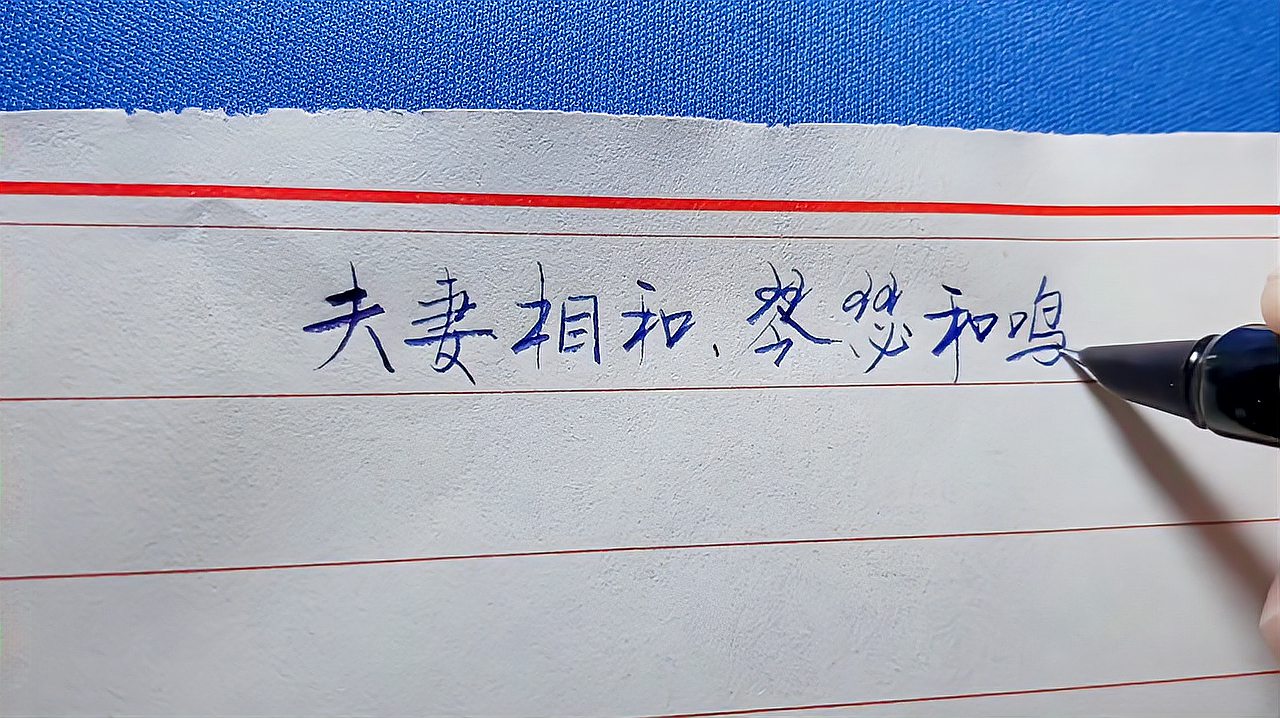 夫妻相和、琴瑟和鸣